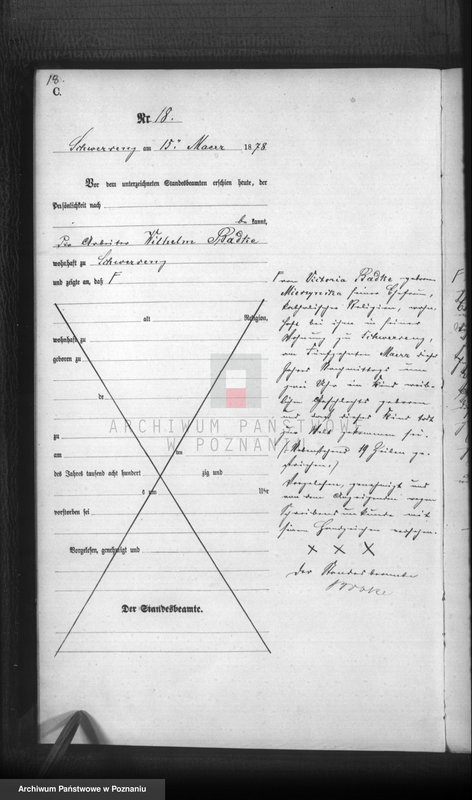 18.
C.
Nr. 18.
Schwersenz am 15ten Maerz 1878
Vor dem unterzeichneten Standesbeamten erschien heute, der
Persönlichkeit nach
be kannt,
der Arbeiter Wilhelm Badke
wohnhaft zu Schwersenz
und zeigte an, daß F
alt Religion,
wohnhaft zu
geboren zu
de
zu
am
des Jahres tausend acht hundert zig und
um Uhr
verstorben sei
Vorgelesen, genehmigt und
Der Standesbeamte.
F von Victoria Badke geborene
seiner Ehefrau,
katholischer Religion, wohn-
haft bei ihm in seiner
Wohnung zu Schwersenz,
am Fünfzehnten Maerz dieses
Jahres Nachmittags um
zwei Uhr ein Kind weib-
lichen Geschlechts geboren
und daß dieses Kind todt
zur Welt gekommen sei.
(Nebenstehend 19 Zeilen ge-
strichen.)
Vorgelesen, genehmigt und
von dem Anzeigenden wegen
Schreibens unkunde mit
seinem Handzeichen versehen.
x x x
Der Standesbeamte
ARCHIWUM PAŃSTWOWE
W POZNANIU
Archiwum Państwowe w Poznaniu